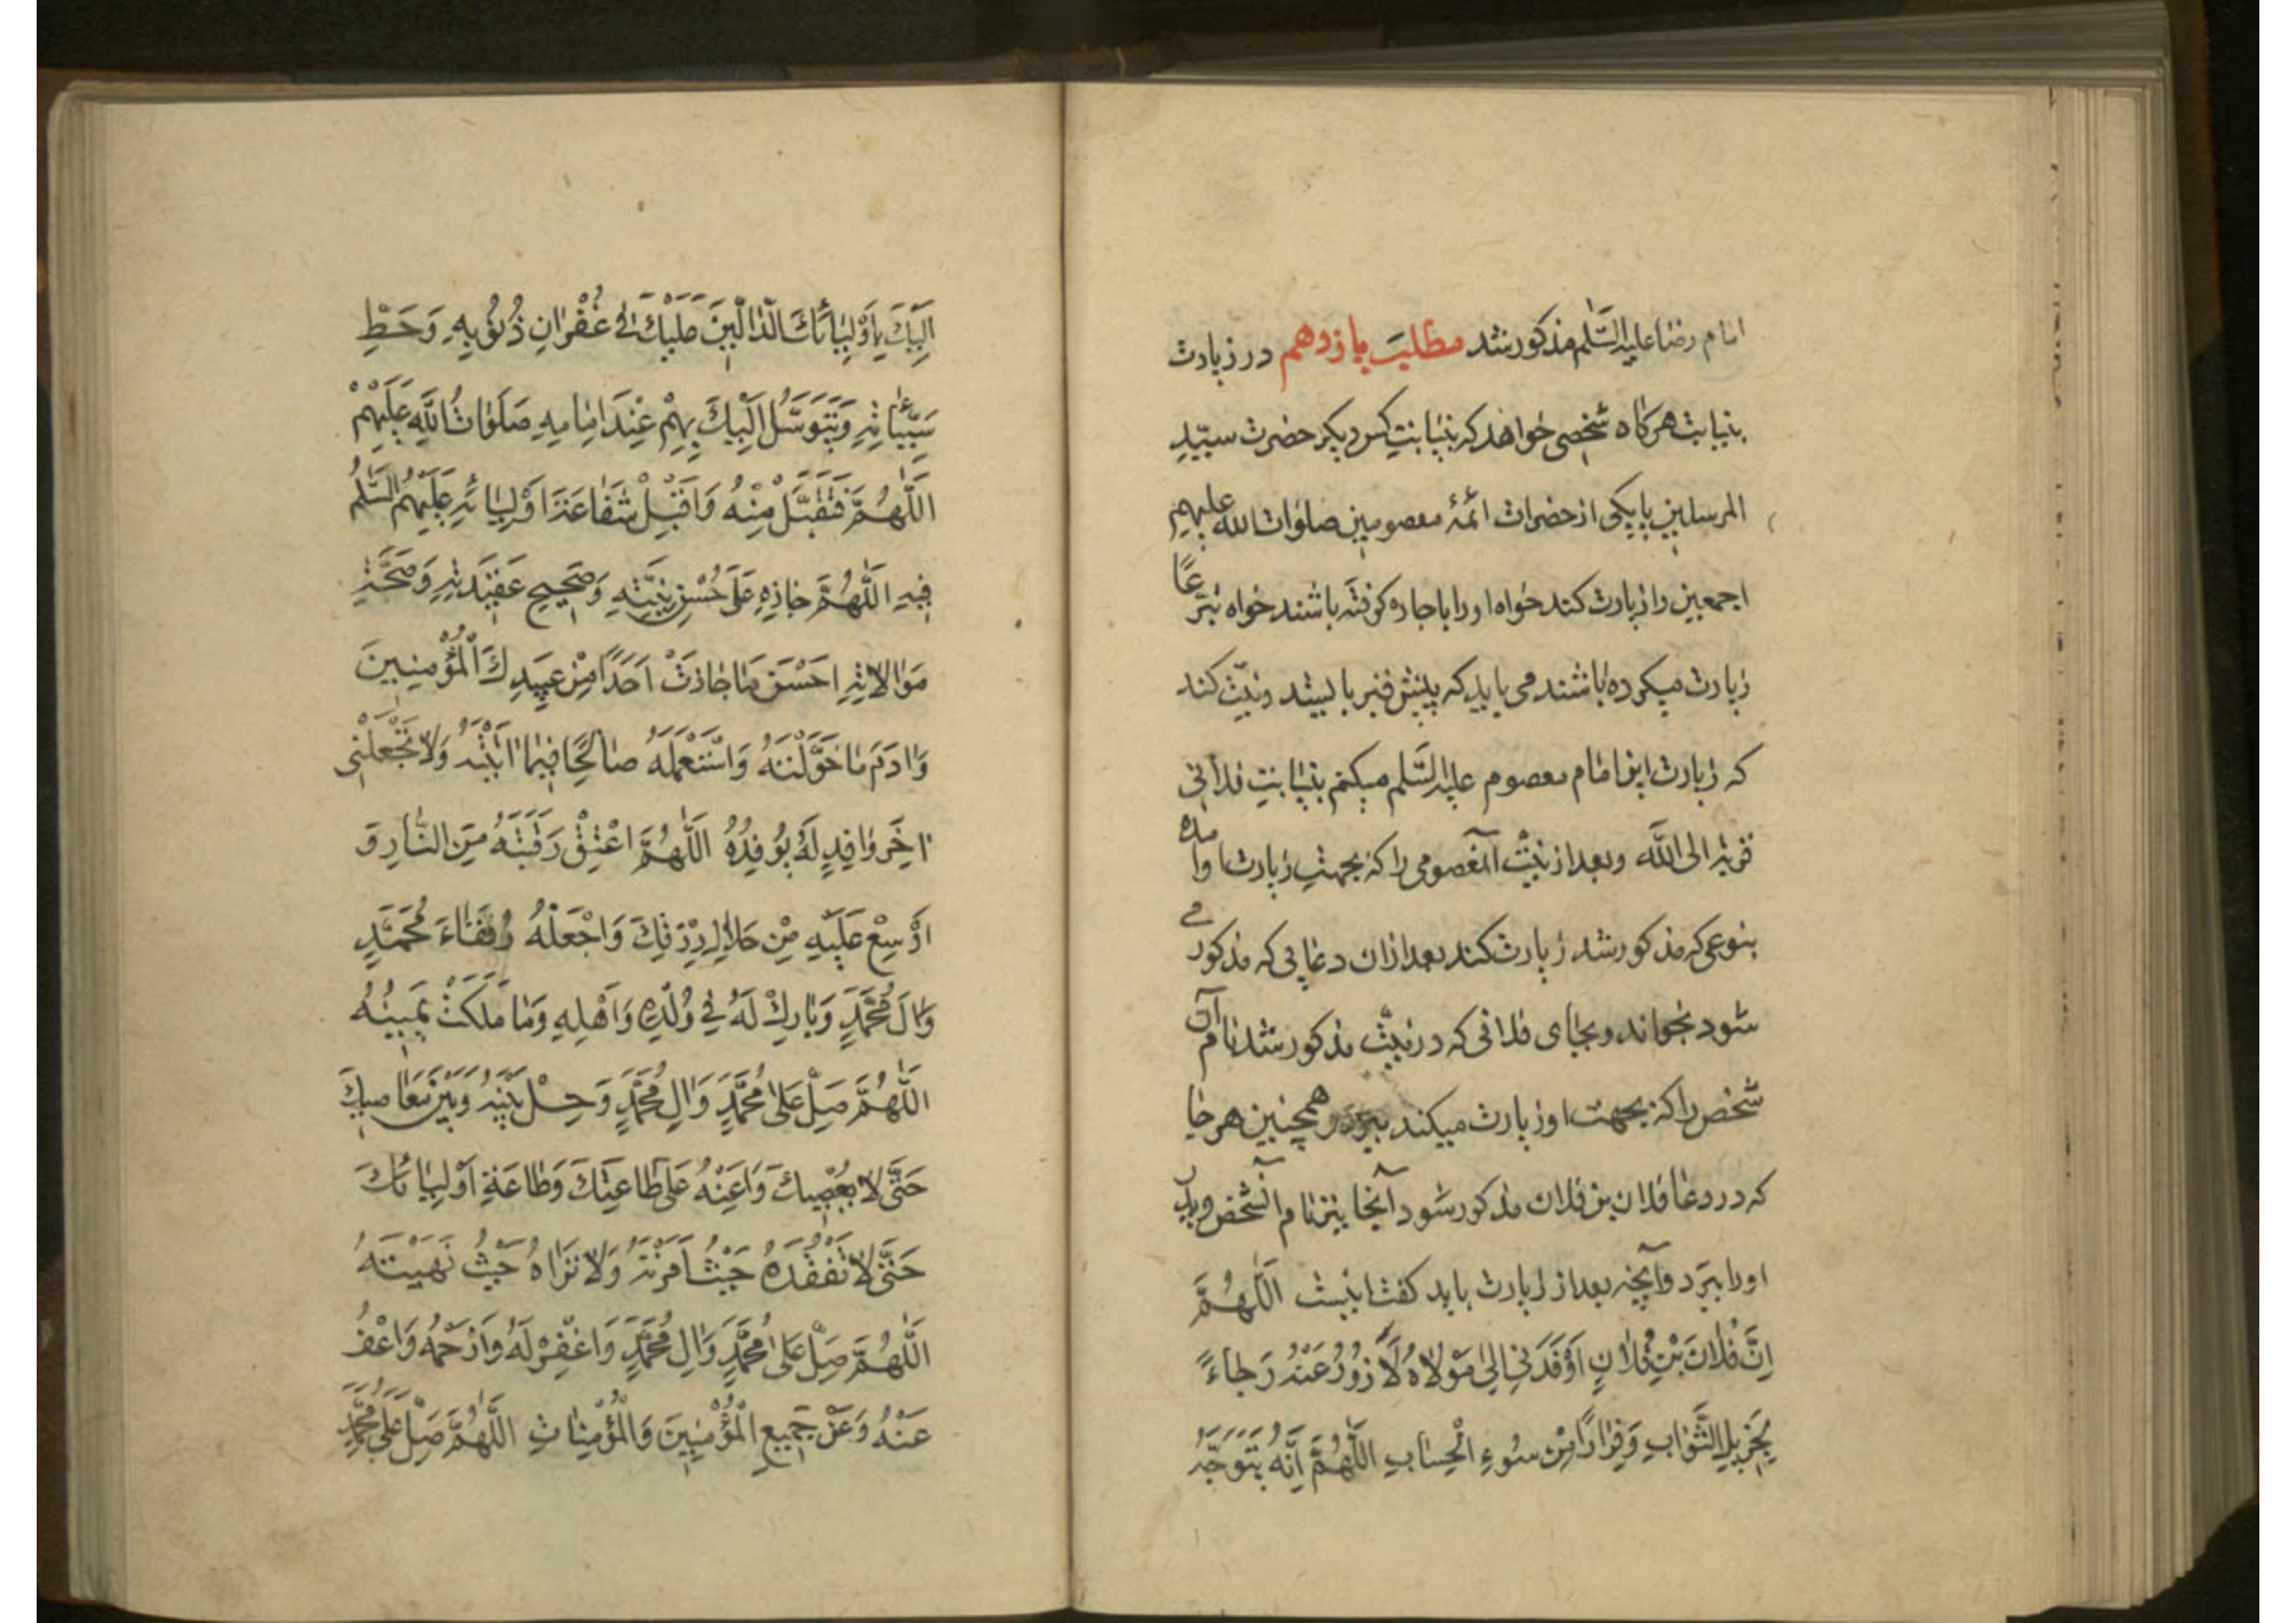 امام رضا علیه السّلم مذکور شد مطلب یازدهم در زیارت
بنیابت هرکاه شخصی خواهد که بنیابتِ کس دیکر حضرت سیّدِ
المرسلین یا یکی از حضرات ائمّۀ معصومین صلوات الله علیهم
اجمعین را زیارت کند خواه او را باجاره کرفته باشند خواه تبرّعًا
زیارت میکرده باشند می باید که پیش قبر بایستد و نیّت کند
که زیارت این امام معصوم علیه السّلم میکنم بنیابتِ فلانی
قربة الی اللّه و بعد از نیّت آنمعصومی را که بجهتِ زیارت او آمده
بنوعی که مذکور شد زیارت کند بعد از ان دعایی که مذکور می
شود بخواند و بجای فلانی که در نیّت مذکور شد نام آن
شخص را که بجهت او زیارت میکند ببرد و همچنین هر جا
که در دعا فلان بن فلان مذکور شود آنجا نیز نام آنشخص و پدر
او را ببرد و آنچه بعد از زیارت باید کفت اینست اَللّٰهُمَّ
اِنَّ فُلانَ بْنِ فُلانٍ اَوْفَدَنی اِلیٰ مَوْلاهُ لِاَزُورَ عَنْهُ رَجاءً
بِجَزیلِ الثَّوابِ وَفِرارًا مِنْ سُوءِ الْحِسابِ اَللّٰهُمَّ اِنَّهُ یَتَوَجَّهُ
اِلَیْكَ بِاَوْلِیائِكَ الدّالّینَ عَلَیْكَ فی غُفْرانِ ذُنُوبِهِ وَحَطِّ
سَیِّئاتِهِ وَیَتَوَسَّلُ اِلَیْكَ بِهِمْ عِنْدَ اِمامِهِ صَلَواتُ اللّٰهِ عَلَیْهِمْ
اَللّٰهُمَّ فَتَقَبَّلْ مِنْهُ وَاقْبَلْ شَفاعَةَ اَوْلِیائِهِ عَلَیْهِمُ السَّلمُ
فیهِ اَللّٰهُمَّ جازِهِ عَلیٰ حُسْنِ نِیَّتِهِ وَصَحیحِ عَقیدَتِهِ وَصِحَّةِ
مَوالاتِهِ اَحْسَنَ ما جازَیْتَ اَحَدًا مِنْ عَبیدِكَ الْمُؤْمِنینَ
وَاَدِمْ ما خَوَّلْتَهُ وَاسْتَعْمِلْهُ صالِحًا فیما اٰتَیْتَهُ وَلا تَجْعَلْنی
اٰخِرَ وافِدٍ لَهُ یُوفِدُهُ اَللّٰهُمَّ اَعْتِقْ رَقَبَتَهُ مِنَ النّارِ وَ
اَوْسِعْ عَلَیْهِ مِنْ حَلالِ رِزْقِكَ وَاجْعَلْهُ مِنْ رُفَقاءِ مُحَمَّدٍ
وَاٰلِ مُحَمَّدٍ وَبارِكْ لَهُ فی وُلْدِهِ وَاَهْلِهِ وَما مَلَكَتْ یَمینُهُ
اَللّٰهُمَّ صَلِّ عَلیٰ مُحَمَّدٍ وَاٰلِ مُحَمَّدٍ وَحِلْ بَیْنَهُ وَبَیْنَ مَعاصیكَ
حَتّیٰ لا یَعْصِیكَ وَاَعِنْهُ عَلیٰ طاعَتِكَ وَطاعَةِ اَوْلِیائِكَ
حَتّیٰ لا تَفْقُدَهُ حَیْثُ اَمَرْتَهُ وَلا تَراهُ حَیْثُ نَهَیْتَهُ
اَللّٰهُمَّ صَلِّ عَلیٰ مُحَمَّدٍ وَاٰلِ مُحَمَّدٍ وَاغْفِرْ لَهُ وَارْحَمْهُ وَاعْفُ
عَنْهُ وَعَنْ جَمیعِ الْمُؤْمِنینَ وَالْمُؤْمِناتِ اَللّٰهُمَّ صَلِّ عَلیٰ مُحَمَّدٍ